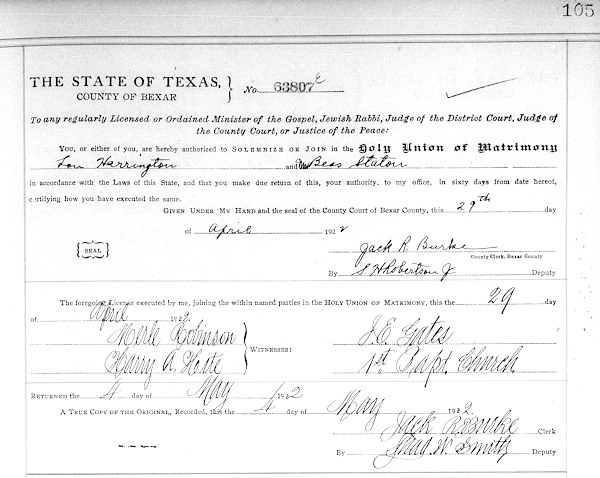 105
THE STATE OF TEXAS, } No. 63807
COUNTY OF BEXAR
To any regularly Licensed or Ordained Minister of the Gospel, Jewish Rabbi, Judge of the District Court, Judge of
the County Court, or Justice of the Peace:
YOU, or either of you, are hereby authorized to SOLEMNIZE OR JOIN in the Holy Union of Matrimony
Harrington and Bess Staton
in accordance with the Laws of this State, and that you make due return of this, your authority, to my office, in sixty days from date hereof,
certifying how you have executed the same.
GIVEN UNDER MY HAND and the seal of the County Court of Bexar County, this 29th day
of April 1922
{SEAL}
Jack R. Burke
County Clerk, Bexar County
By S H Robertson Jr Deputy
The foregoing License executed by me, joining the within named parties in the HOLY UNION OF MATRIMONY, this the 29 day
of April 1922.
Merle Robinson
Harry A.
} WITNESSES:
Gates
1st Bapt. Church
RETURNED the 4 day of May 1922
A TRUE COPY OF THE ORIGINAL, Recorded, this the 4 day of May 1922.
Jack R. Burke Clerk
By W. Smith Deputy